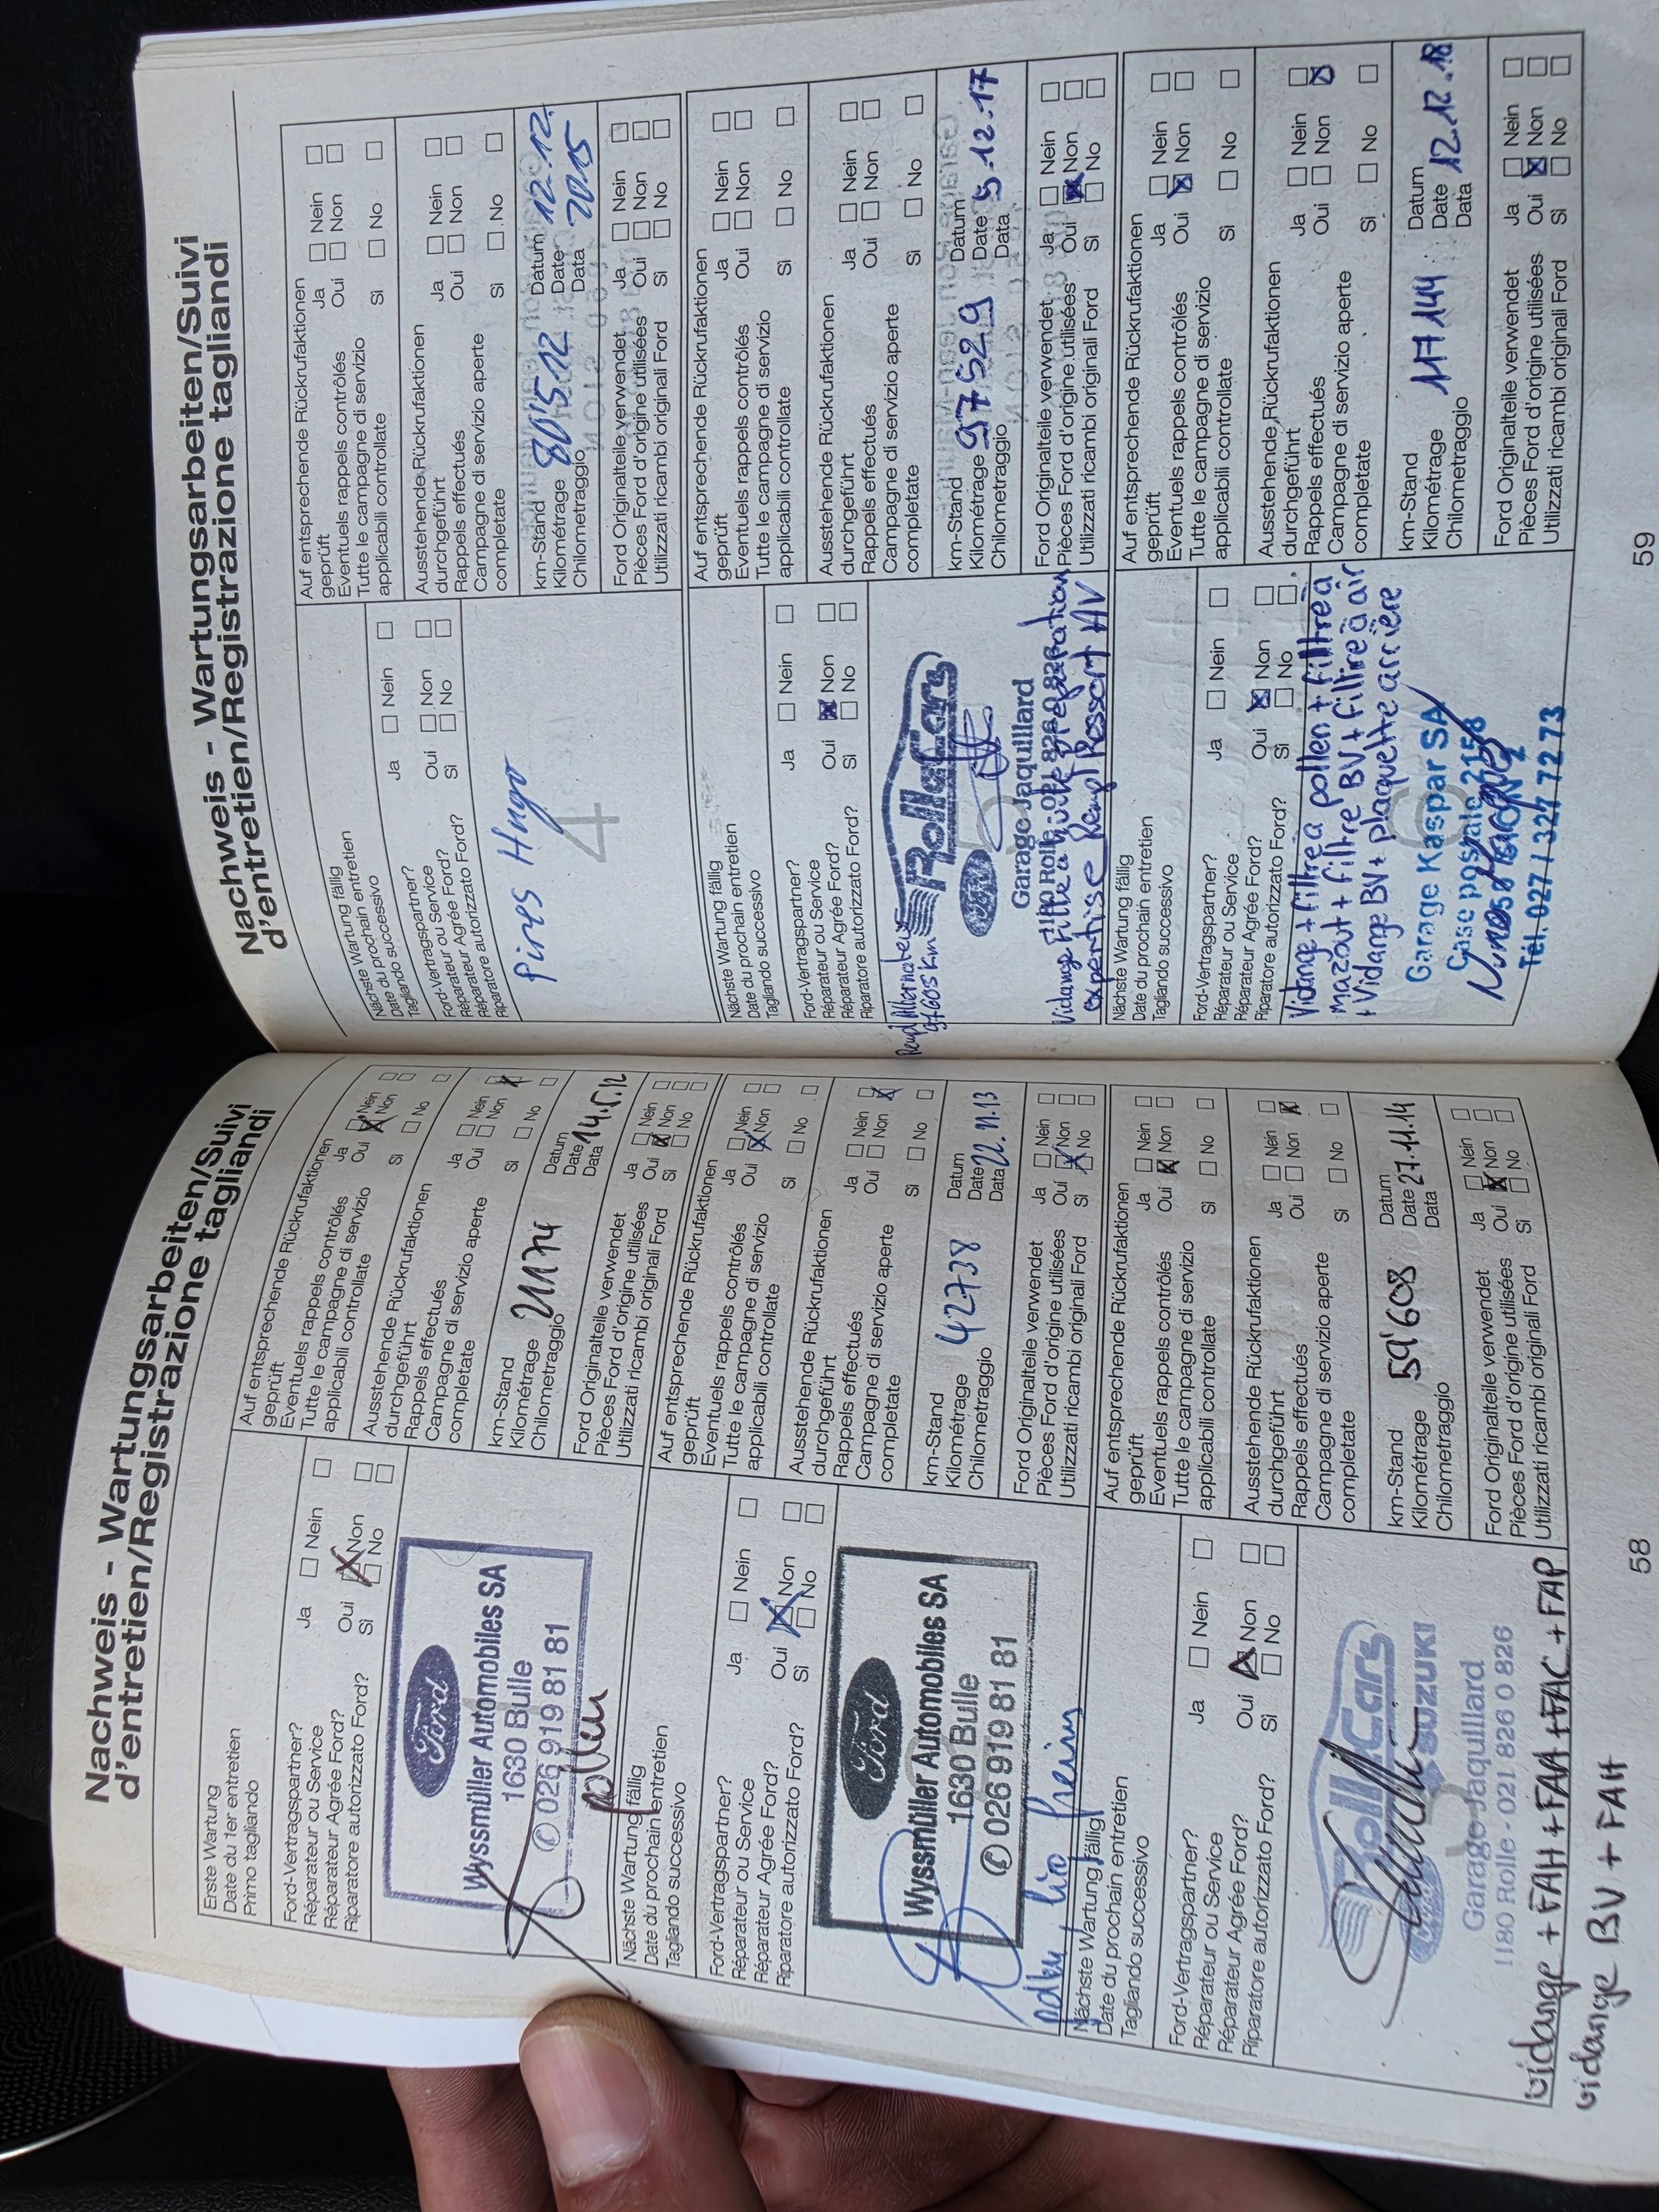 Nachweis - Wartungsarbeiten/Suivi
d'entretien/Registrazione tagliandi
Erste Wartung
Date du 1er entretien
Primo tagliando
Ford-Vertragspartner?
Réparateur ou Service
Réparateur Agrée Ford?
Riparatore autorizzato Ford?
Ja Nein
Oui Non
Si No
Ford
Wyssmüller Automobiles SA
1630 Bulle
✆ 026 919 81 81
pollen
Auf entsprechende Rückrufaktionen
geprüft
Eventuels rappels contrôlés
Tutte le campagne di servizio
applicabili controllate
Ja Nein
Oui Non
Si No
Ausstehende Rückrufaktionen
durchgeführt
Rappels effectués
Campagne di servizio aperte
completate
Ja Nein
Oui Non
Si No
km-Stand
Kilométrage 21174
Chilometraggio
Datum
Date 14.5.12
Data
Ford Originalteile verwendet
Pièces Ford d'origine utilisées
Utilizzati ricambi originali Ford
Ja Nein
Oui Non
Si No
Nächste Wartung fällig
Date du prochain entretien
Tagliando successivo
Ford-Vertragspartner?
Réparateur ou Service
Réparateur Agrée Ford?
Riparatore autorizzato Ford?
Ja Nein
Oui Non
Si No
Ford
Wyssmüller Automobiles SA
1630 Bulle
✆ 026 919 81 81
Auf entsprechende Rückrufaktionen
geprüft
Eventuels rappels contrôlés
Tutte le campagne di servizio
applicabili controllate
Ja Nein
Oui Non
Si No
Ausstehende Rückrufaktionen
durchgeführt
Rappels effectués
Campagne di servizio aperte
completate
Ja Nein
Oui Non
Si No
km-Stand
Kilométrage 42738
Chilometraggio
Datum
Date 22.11.13
Data
Ford Originalteile verwendet
Pièces Ford d'origine utilisées
Utilizzati ricambi originali Ford
Ja Nein
Oui Non
Si No
Nächste Wartung fällig
Date du prochain entretien
Tagliando successivo
Ford-Vertragspartner?
Réparateur ou Service
Réparateur Agrée Ford?
Riparatore autorizzato Ford?
Ja Nein
Oui Non
Si No
Roll Cars
SUZUKI
Garage Jaquillard
1180 Rolle - 021 826 0 826
vidange + FAH + FAA + FAC + FAP
vidange BV + FAH
Auf entsprechende Rückrufaktionen
geprüft
Eventuels rappels contrôlés
Tutte le campagne di servizio
applicabili controllate
Ja Nein
Oui Non
Si No
Ausstehende Rückrufaktionen
durchgeführt
Rappels effectués
Campagne di servizio aperte
completate
Ja Nein
Oui Non
Si No
km-Stand
Kilométrage 59'608
Chilometraggio
Datum
Date 27.11.14
Data
Ford Originalteile verwendet
Pièces Ford d'origine utilisées
Utilizzati ricambi originali Ford
Ja Nein
Oui Non
Si No
58
Nachweis - Wartungsarbeiten/Suivi
d'entretien/Registrazione tagliandi
Nächste Wartung fällig
Date du prochain entretien
Tagliando successivo
Ford-Vertragspartner?
Réparateur ou Service
Réparateur Agrée Ford?
Riparatore autorizzato Ford?
Ja Nein
Oui Non
Si No
4
Pires Hugo
Auf entsprechende Rückrufaktionen
geprüft
Eventuels rappels contrôlés
Tutte le campagne di servizio
applicabili controllate
Ja Nein
Oui Non
Si No
Ausstehende Rückrufaktionen
durchgeführt
Rappels effectués
Campagne di servizio aperte
completate
Ja Nein
Oui Non
Si No
km-Stand
Kilométrage 80'512
Chilometraggio
Datum 12.12.
Date 2015
Data
Ford Originalteile verwendet
Pièces Ford d'origine utilisées
Utilizzati ricambi originali Ford
Ja Nein
Oui Non
Si No
Nächste Wartung fällig
Date du prochain entretien
Tagliando successivo
Ford-Vertragspartner?
Réparateur ou Service
Réparateur Agrée Ford?
Riparatore autorizzato Ford?
Ja Nein
Oui Non
Si No
Rempl Alternateur
97605 Km
Roll Cars
Garage Jaquillard
1180 Rolle - 021 826 0 826
Vidange Filtre à huile préparation
expertise Rempl Ressort AV
Auf entsprechende Rückrufaktionen
geprüft
Eventuels rappels contrôlés
Tutte le campagne di servizio
applicabili controllate
Ja Nein
Oui Non
Si No
Ausstehende Rückrufaktionen
durchgeführt
Rappels effectués
Campagne di servizio aperte
completate
Ja Nein
Oui Non
Si No
km-Stand
Kilométrage 97529
Chilometraggio
Datum
Date 5.12.17
Data
Ford Originalteile verwendet
Pièces Ford d'origine utilisées
Utilizzati ricambi originali Ford
Ja Nein
Oui Non
Si No
Nächste Wartung fällig
Date du prochain entretien
Tagliando successivo
Ford-Vertragspartner?
Réparateur ou Service
Réparateur Agrée Ford?
Riparatore autorizzato Ford?
Ja Nein
Oui Non
Si No
6
Vidange + filtre à pollen + filtre à
mazout + filtre BV + filtre à air
+ Vidange BV + plaquette arrière
Garage Kaspar SA
Case postale 2158
Tél. 027 / 327 72 73
Auf entsprechende Rückrufaktionen
geprüft
Eventuels rappels contrôlés
Tutte le campagne di servizio
applicabili controllate
Ja Nein
Oui Non
Si No
Ausstehende Rückrufaktionen
durchgeführt
Rappels effectués
Campagne di servizio aperte
completate
Ja Nein
Oui Non
Si No
km-Stand
Kilométrage 117144
Chilometraggio
Datum
Date 12.12.18
Data
Ford Originalteile verwendet
Pièces Ford d'origine utilisées
Utilizzati ricambi originali Ford
Ja Nein
Oui Non
Si No
59